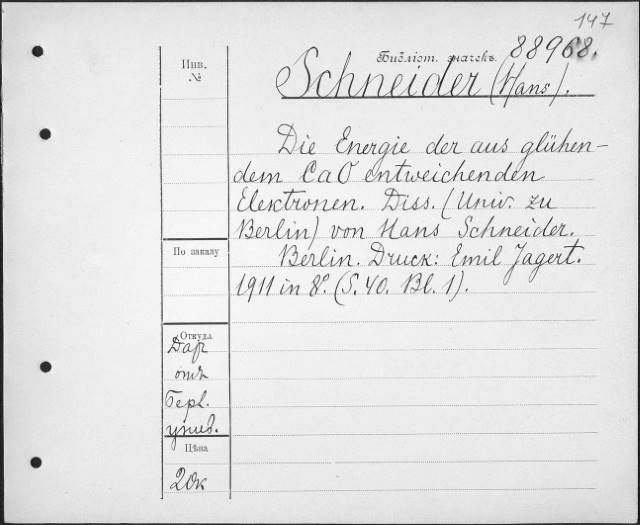 147
Библіот. значекъ 88968.
Инв.
№
Schneider (Hans).
Die Energie der aus glühen-
dem CaO entweichenden
Elektronen. Diss. (Univ. zu
Berlin) von Hans Schneider.
По заказу
Berlin. Druck: Emil Jagert.
1911 in 8º. (S. 40. Bl. 1).
Откуда
Дар
отъ
Берл.
унив.
Цѣна
20к